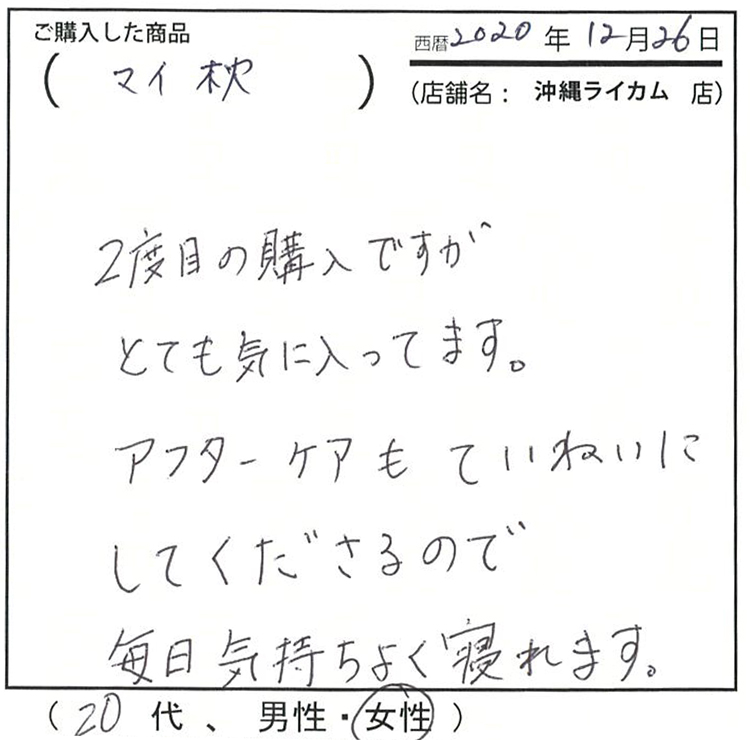 ご購入した商品
西暦2020年 12月26日
( マイ枕 )
(店舗名： 沖縄ライカム 店)
2度目の購入ですが
とても気に入ってます。
アフターケアもていねいに
してくださるので
毎日気持ちよく寝れます。
( 20 代 、 男性・女性 )